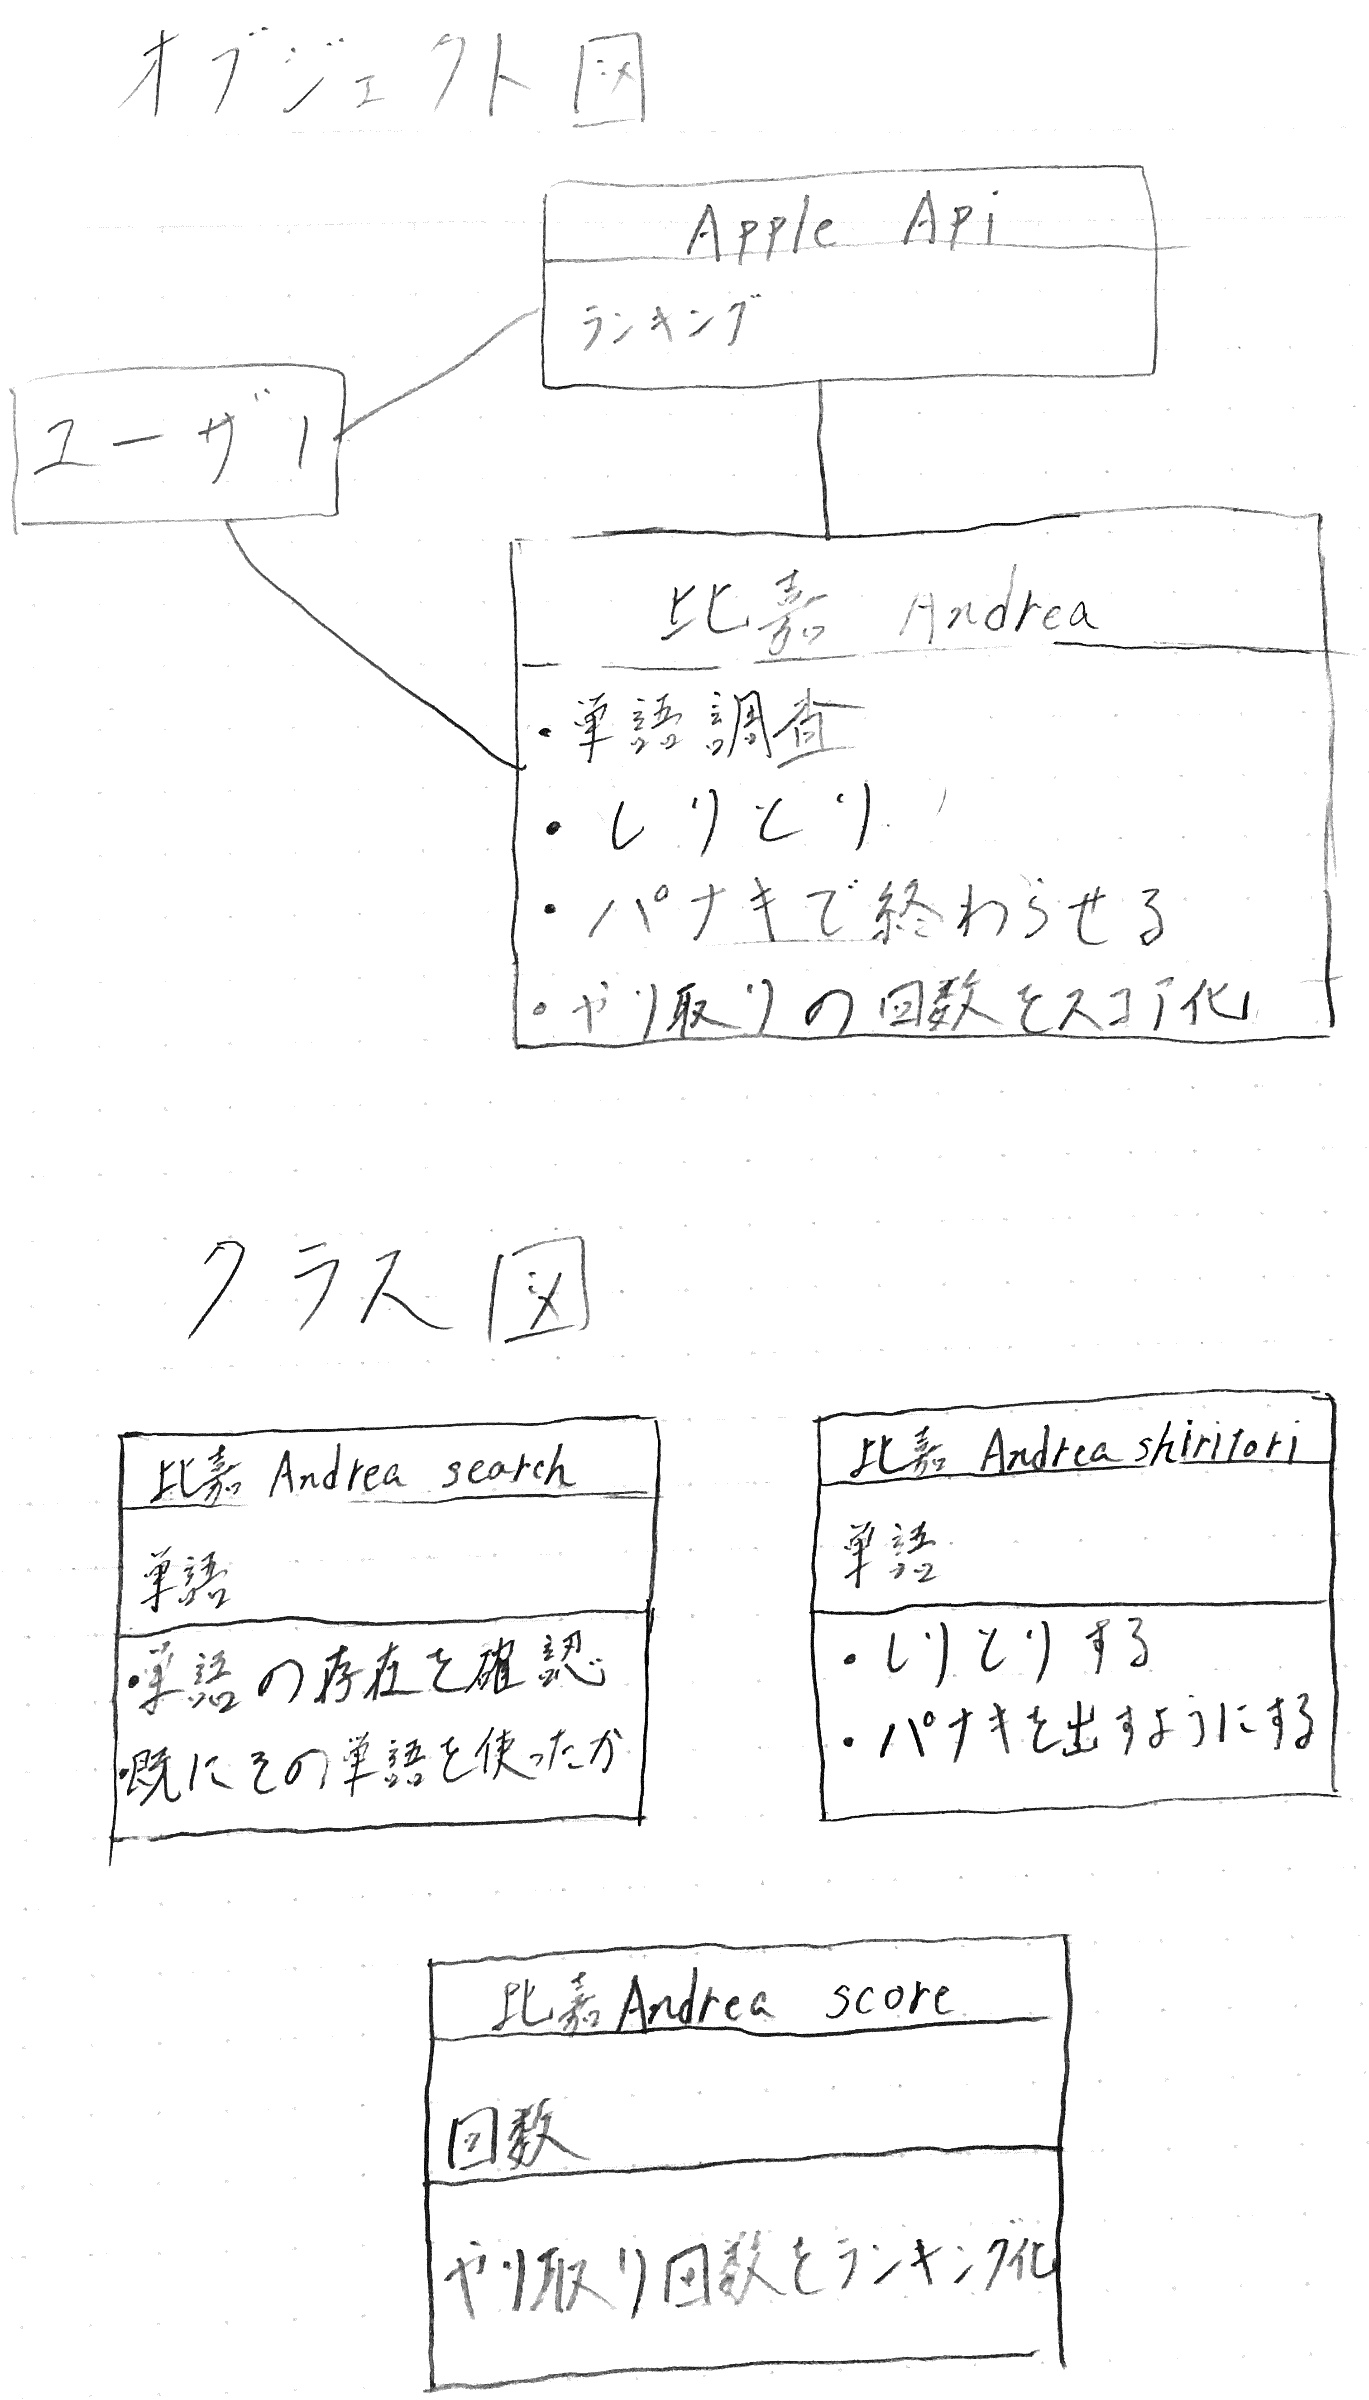 オブジェクト図
Apple Api
ランキング
ユーザー
比嘉 Andrea
・単語調査
・しりとり
・パナキで終わらせる
・やり取りの回数をスコア化
クラス図
比嘉 Andrea search
単語
・単語の存在を確認
・既にその単語を使ったか
比嘉 Andrea shiritori
単語
・しりとりする
・パナキを出すようにする
比嘉 Andrea score
回数
やり取り回数をランキング化